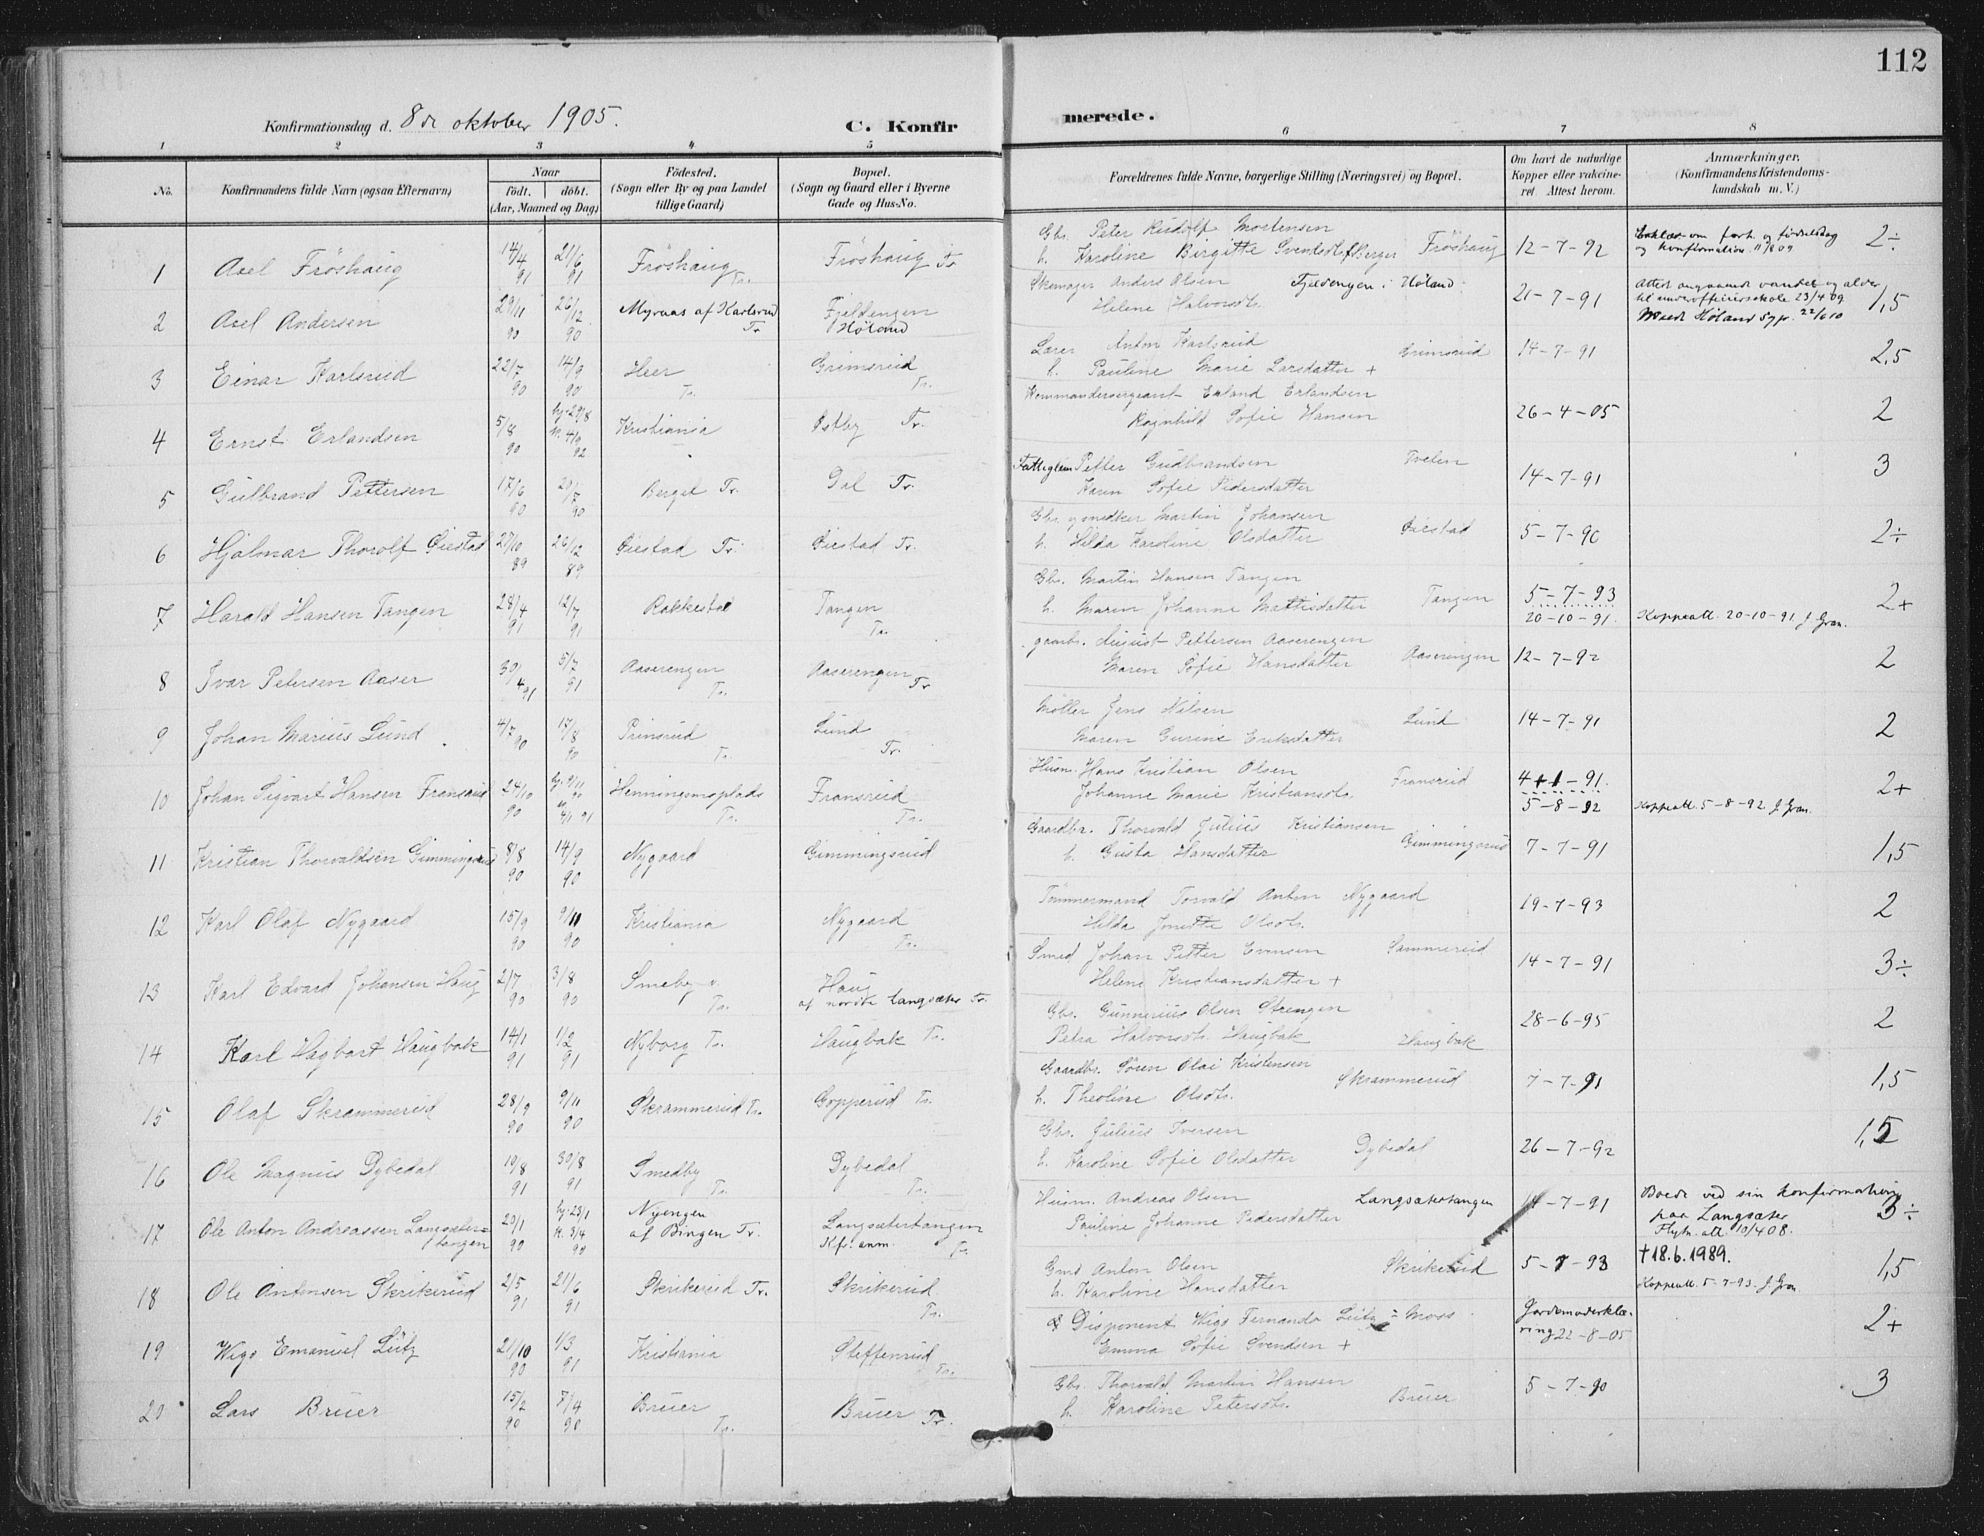 112
Konfirmationsdag d. 8de oktober 1905.
C. Konfirmerede.
1 2 3 4 5 6 7 8
No.
Konfirmandens fulde Navn (ogsaa Efternavn)
Naar
födt. döbt.
(Aar, Maaned og Dag)
Födested.
(Sogn eller By og paa Landet
tillige Gaard)
Bopæl.
(Sogn og Gaard eller i Byerne
Gade og Hus-No.
Forældrenes fulde Navne, borgerlige Stilling (Næringsvei) og Bopæl.
Om havt de naturlige
Kopper eller vakcine-
ret. Attest herom.
Anmærkninger.
(Konfirmandens Kristendoms-
kundskab m. V.)
1 Axel Fröshaug 14/4 91 21/6 91 Fröshaug Tr. Fröshaug Tr
Gbr. Peter Rudolf Mortensen
h. Karoline Birgitte Fröshaug 12-7-92
og konfirmation 11/8 09 2÷
2 Axel Andersen 29/11 90 26/12 90 Myraas af Karlsrud Tr Fjeldengen Höland
Skomager Anders Olsen Fjeldengen i Höland
Helene Halvorsdt. 21-7-91
Attest angaaende vandel og alder
til underofficersskole 23/4 09 1,5
3 Einar Karlsrud 22/7 90 14/9 90 Heer Tr. Grimsrud Tr.
Anton Karlsrud Grimsrud
h. Pauline Marie Larsdatter + 14-7-91 2,5
4 Ernst Erlandsen 5/8 90 hj. 29/8 Kristiania Østby Tr.
Kommandersergeant Erland Erlandsen
Ragnhild Sofie Hansen 26-4-05 2
5 Gulbrand Pettersen 17/6 90 20/7 90 Berget Tr. Dal Tr.
Fattiglem Petter Gudbrandsen Tvelen
Karen Sofie Pedersdatter 14-7-91 3
6 Hjalmar Thorolf Øiestad 27/10 89 26/12 89 Øiestad Tr. Øiestad Tr.
Gbr. og snedker Martin Johansen Øiestad
h. Hilda Karoline Olsdatter 5-7-90 2÷
7 Harald Hansen Tangen 28/4 91 12/7 91 Rakkestad Tangen Tr.
Gbr. Martin Hansen Tangen
h. Maren Johanne Mattisdatter Tangen 5-7-93
20-10-91. Koppeatt. 20-10-91 J Gran. 2+
8 Ivar Petersen Aaser 30/4 91 5/7 91 Aaserengen Tr. Aaserengen Tr
gaardb. August Pettersen Aaserengen
Maren Sofie Hansdatter Aaserengen 12-7-92 2
9 Johan Marius Lund 4/7 90 17/8 90 Prinsrud Tr. Lund Tr.
Möller Jens Nilsen Lund
Maren Gurine Eriksdatter 14-7-91 2
10 Johan Sigvart Hansen Fransrud 24/10 90 hj. 9/11 90 Henningsmoplads Tr. Fransrud Tr.
Husm. Hans Kristian Olsen Fransrud
Johanne Marie Kristiansdt. 4+1-91.
5-8-92 Koppeatt. 5-8-92 J Gran. 2+
11 Kristian Thorvaldsen Gimmingsrud 8/8 90 14/9 90 Nygaard Gimmingsrud
Gaardbr. Thorvald Julius Kristiansen
h. Gusta Hansdatter Gimmingsrud 7-7-91 1,5
12 Karl Olaf Nygaard 15/9 90 9/11 90 Kristiania Nygaard Tr.
Tömmermand Torvald Anton Nygaard
Hilda Jonette Olsdt. 19-7-93 2
13 Karl Edvard Johansen Haug 2/7 90 3/8 90 Smeby Tr. Haug
af nordre Langsæter Tr.
Smed Johan Petter Evensen Sammerud
Helene Kristiansdatter + 14-7-91 3÷
14 Karl Hagbart Haugbak 14/1 91 1/2 91 Nyborg Tr. Haugbak Tr.
Gbr. Gunnerius Olsen Strengen
Petra Halvorsdt. Haugbak Haugbak 28-6-95 2
15 Olaf Skrammerud 28/9 90 9/11 90 Skrammerud Tr. Gopperud Tr.
Gaardbr. Sören Olai Kristensen Skrammerud
h. Theoline Olsdt. 7-7-91 1,5
16 Ole Magnus Dybedal 19/8 91 30/8 91 Smedby Tr. Dybedal Tr.
Gbr. Julius Iversen Dybedal
h. Karoline Sofie Olsdatter 26-7-92 1,5
17 Ole Anton Andreassen Langsæter=
tangen 20/1 90 hj. 23/1 k. 3/4 90 Nyengen
af Bingen Tr. Langsætertangen
Kfr. anm. Tr.
Husm. Andreas Olsen Langsætertangen
Pauline Johanne Pedersdatter 14-7-91
Boede ved sin konfirmation
paa Langsæter
Flytn. att. 10/4 08. 3÷
18 Ole Antonsen Skrikerud 2/5 91 21/6 91 Skrikerud Tr. Skrikerud Tr.
Gmd Anton Olsen Skrikerud
h. Karoline Hansdatter 5-7-93
†18.6.1989.
Koppeatt. 5-7-93. J Gran 1,5
19 Wigo Emanuel Lütz 21/10 90 1/3 91 Kristiania Steffensrud Tr.
Disponent Wigo Fernando Lütz - Moss
Emma Sofie Svendsen +
Jordemoderklæ-
ring 22-8-05 2+
20 Lars Bruer 15/2 90 7/4 90 Bruer Tr. Bruer Tr.
Gbr. Thorvald Martin Hansen Bruer
h. Karoline Petersdt. 5-7-90 3